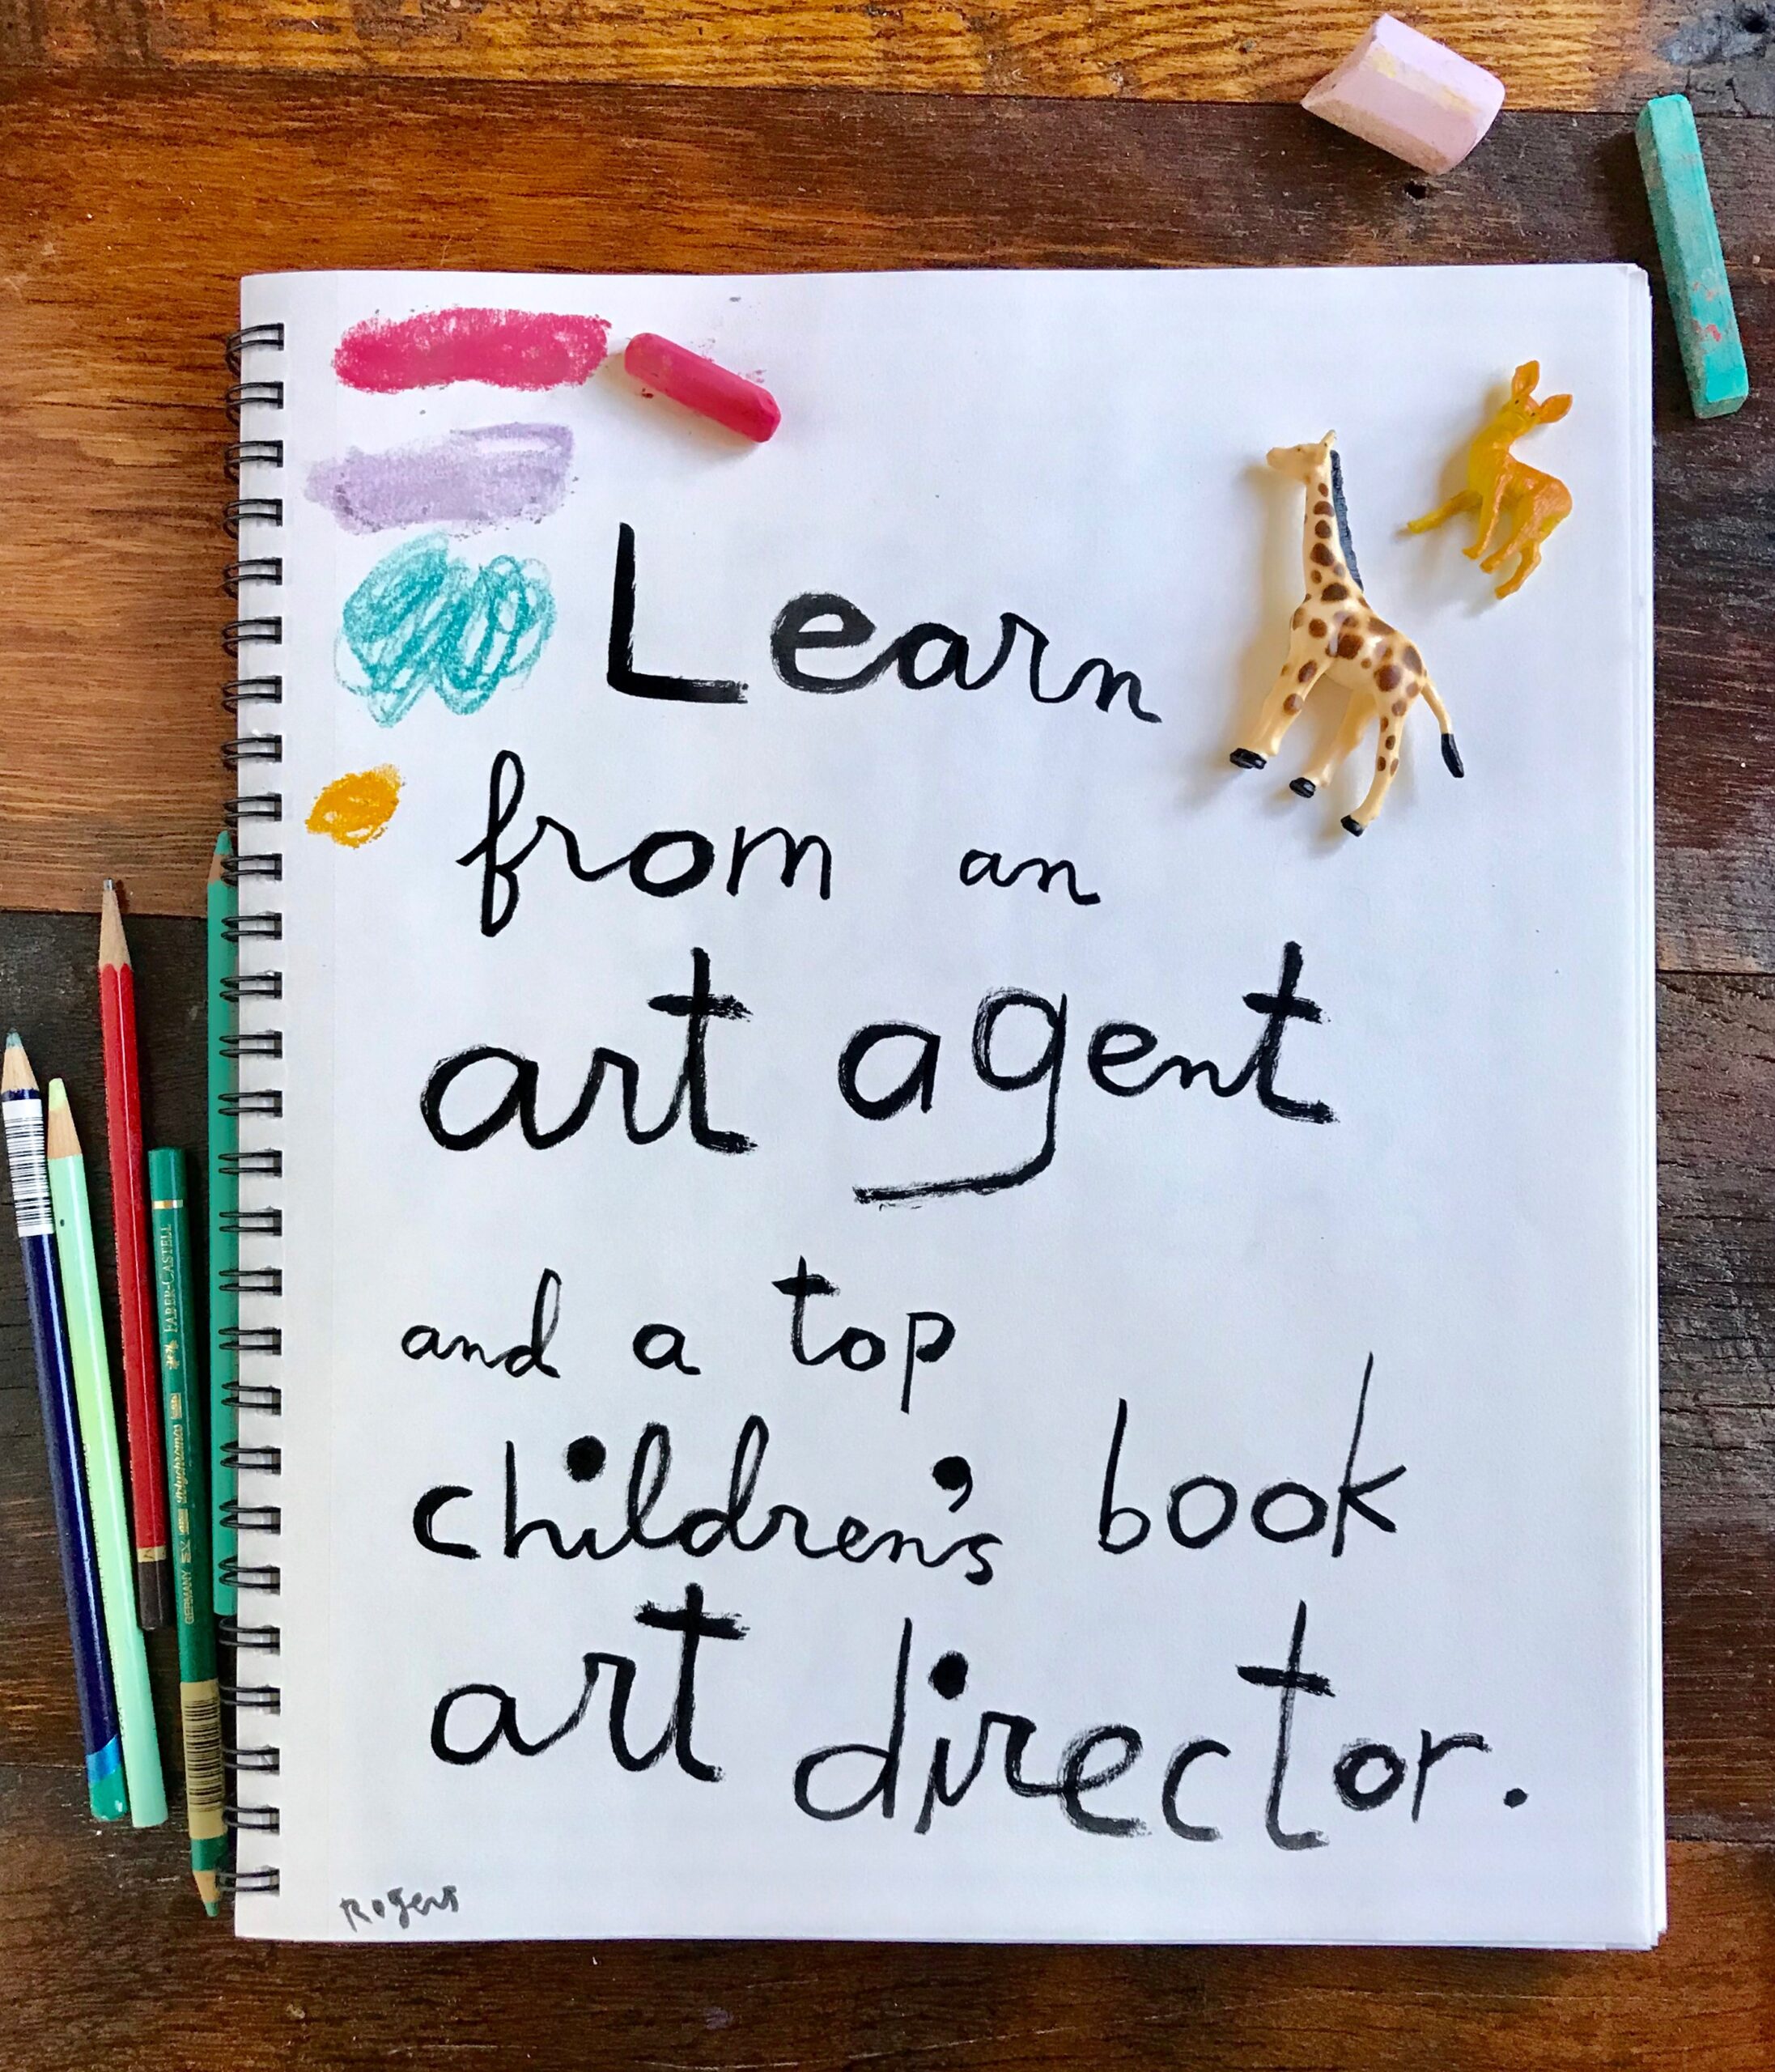 Learn
from an
art agent
and a top
children's book
art director.
Rogers
FABER-CASTELL
GERMANY